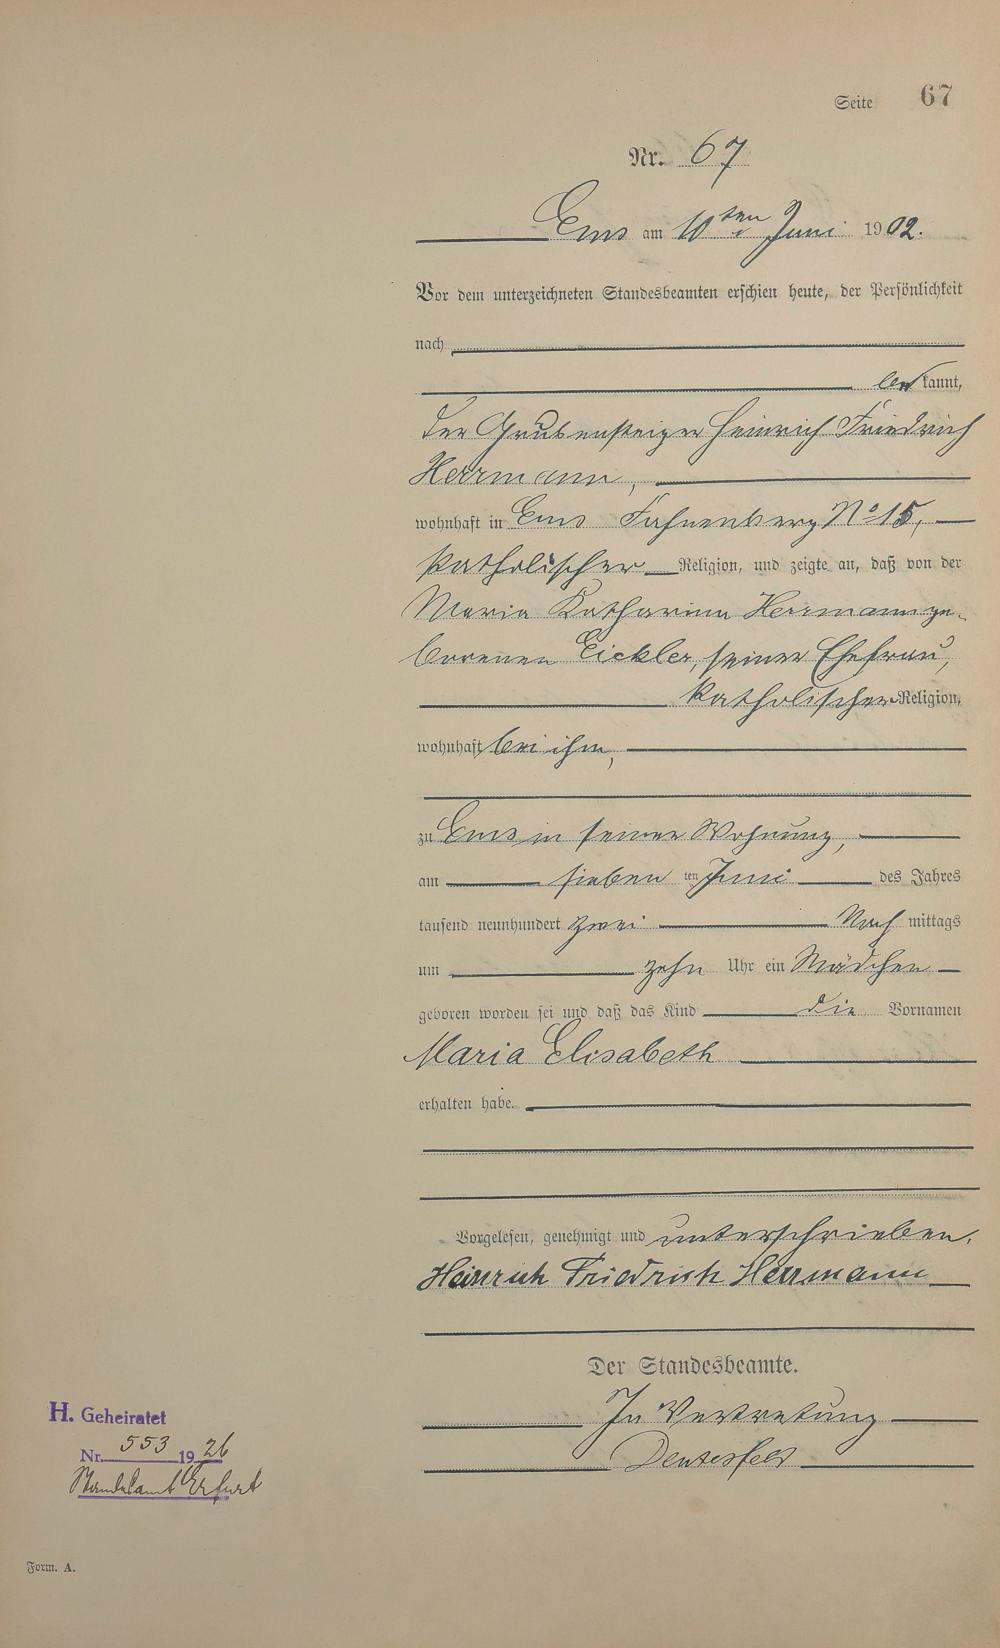 Seite 67
Nr. 67
Ems am 10ten Juni 1902.
Vor dem unterzeichneten Standesbeamten erschien heute, der Persönlichkeit
nach
bekannt,
der Grubensteiger Heinrich Friedrich
Herrmann,
wohnhaft in Ems Fahnenberg No 15,
katholischer Religion, und zeigte an, daß von der
Maria Katharina Herrmann ge-
borenen Eickler, seiner Ehefrau,
katholischer Religion,
wohnhaft bei ihm,
zu Ems in seiner Wohnung,
am sieben ten Juni des Jahres
tausend neunhundert zwei Nach mittags
um zehn Uhr ein Mädchen
geboren worden sei und daß das Kind die Vornamen
Maria Elisabeth
erhalten habe.
Vorgelesen, genehmigt und unterschrieben.
Heinrich Friedrich Herrmann
Der Standesbeamte.
In Vertretung
H. Geheiratet
Nr. 553 1926
Standesamt Erfurt
Form. A.